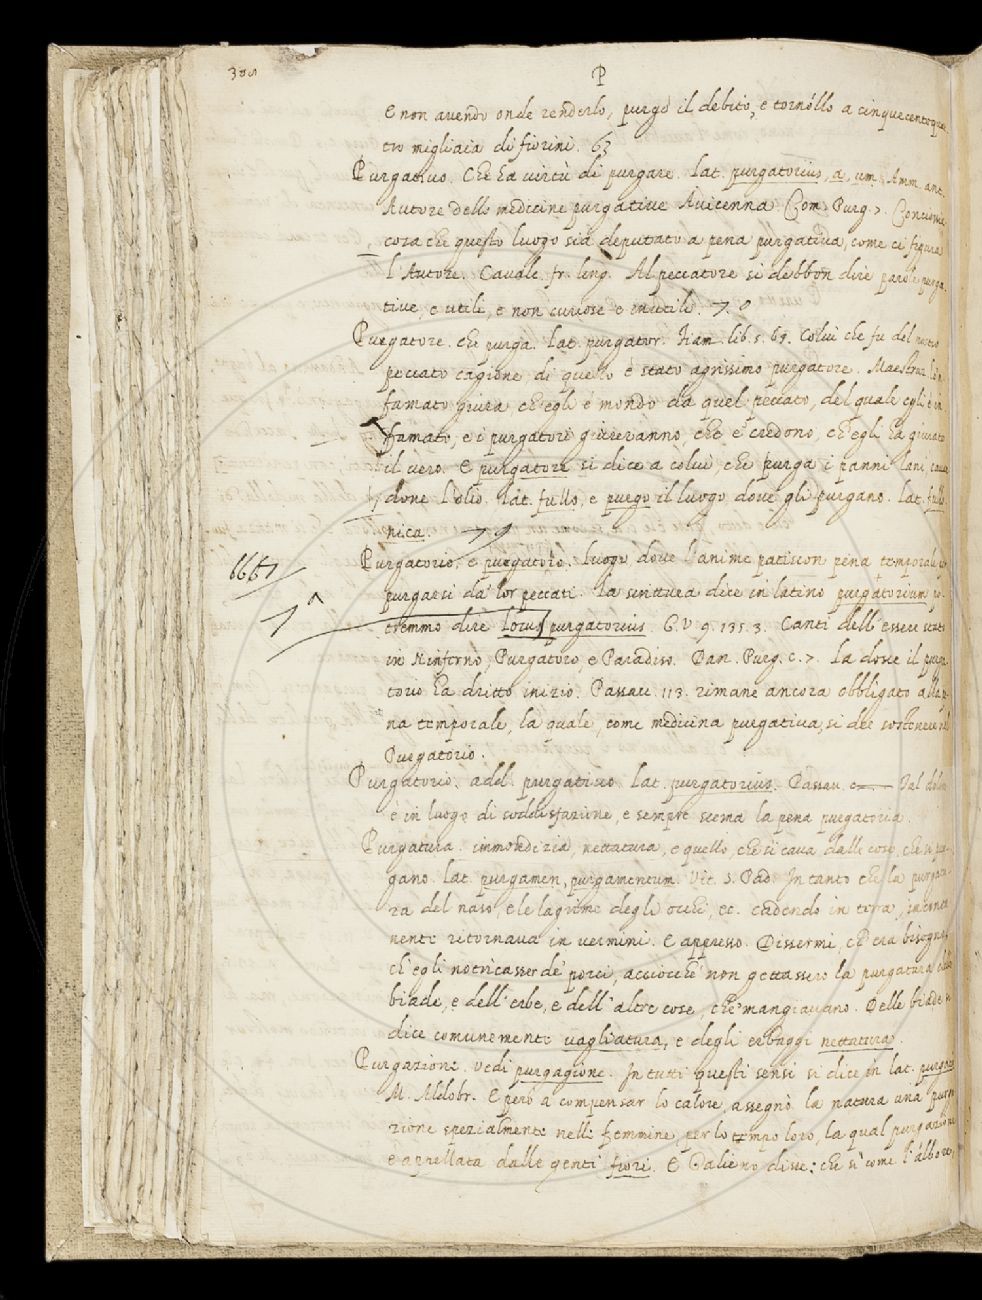 P
E non avendo onde renderlo, purgò il debito, e tornòllo a cinquecentoqua
tro migliaia di fiorini. 63
Purgativo. Che ha virtù di purgare. Lat. purgatorius, a, um. Amm. ant.
Autore delle medicine purgative Avicenna. Com. Purg. 7.
cosa che questo luogo sia deputato a pena purgativa, come ci figura
l'Autore. Cavalc. fr. ling. Al peccatore si debbon dire parole purga
tive, e utili, e non curiose e inutili.
Purgatore. che purga. Lat. purgator. lib. s. 69. Colui che fu del nostro
peccato cagione, di quello è stato agrissimo purgatore. Maestruz. L'in
famato giura ch'egli è mondo da quel peccato, del quale egli è in
famato, e i purgatori giureranno, che e' credono, ch'egli ha giurato
il vero. E purgatore si dice a colui che purga i panni lani, cavan
done l'olio. Lat. fullo, e purgo il luogo dove gli purgano. Lat. fullo
nica.
666
Purgatorio, e purgatoro. Luogo dove l'anime patiscon pena temporale p
purgarsi da' lor peccati. La scrittura dice in latino purgatorium po
tremmo dire locus purgatorius. G. V. 9. 135. 3. Canti dell'essere stato
in Ninferno, Purgatoro, e Paradiso. Dan. Purg. c. 7. La dove il purga
torio ha dritto inizio. Passav. 113. rimane ancora obbligato alla pe
na temporale, la quale, come medicina purgativa, si dee sostenere nel
Purgatorio.
Purgatorio. add. purgativo. Lat. purgatorius. Passav. c— Tal dolore
è in luogo di soddisfazione, e sempre scema la pena purgatoria.
Purgatura. immondizia, nettatura, e quello, che si cava dalle cose, che si pur
gano. Lat. purgamen, purgamentum. Vit. S. Pad. In tanto che la purgatu
ra del naso, e le lagrime degli occhi, ec. cadendo in terra, inconta
nente ritornava in vermini. E appresso. Dissermi, ch'era bisogno,
ch'egli notricasser de' porci, acciocchè non gettassero la purgatura delle
biade, e dell'erbe, e dell'altre cose, che mangiavano. Delle biade si
dice comunemente vagliatura, e degli erbaggi nettatura.
Purgazione. vedi purgagione. In tutti questi sensi si dice in lat. purgatio
M. Aldobr. E però a compensar lo calore, assegnò la natura una purga
zione spezialmente nelle femmine per lo tempo loro, la qual purgazione
e appellata dalle genti fiori. E Galieno disse: che sì come l'albore,